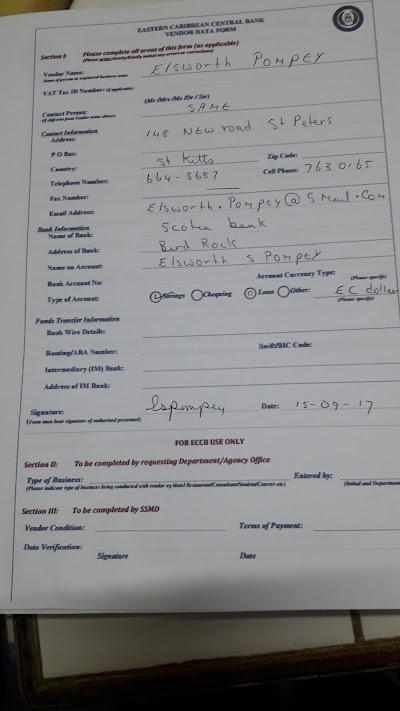 EASTERN CARIBBEAN CENTRAL BANK
VENDOR DATA FORM
Section I: Please complete all areas of this form (as applicable)
(Please print clearly/kindly initial any errors or corrections)
Vendor Name: Elsworth Pompey
Name of person or registered business name
VAT Tax ID Number: (if applicable)
(Mr /Mrs /Ms /Dr / Sir)
Contact Person: SAME
(if different from Vendor name above)
Contact Information
Address: 148 New road St Peters
P O Box:
Country: St Kitts Zip Code:
Telephone Number: 664-3687 Cell Phone: 763 0165
Fax Number:
Email Address: Elsworth.Pompey@Gmail.Com
Bank Information
Name of Bank: Scotia bank
Address of Bank: Bird Rock
Name on Account: Elsworth S Pompey
Bank Account No: Account Currency Type: (Please specify)
Type of Account: Savings Chequing Loan Other: EC dollar
(Please specify)
Funds Transfer Information
Bank Wire Details:
Routing/ABA Number: Swift/BIC Code:
Intermediary (IM) Bank:
Address of IM Bank:
Signature: Espompey Date: 15-09-17
(Form must bear signature of authorised personnel)
FOR ECCB USE ONLY
Section II: To be completed by requesting Department/Agency Office
Type of Business: Entered by:
(Please indicate type of business being conducted with vendor eg Hotel/Restaurant/Consultant/Student/Caterer etc) (Initial and Department
Section III: To be completed by SSMD
Vendor Condition: Terms of Payment:
Data Verification:
Signature Date